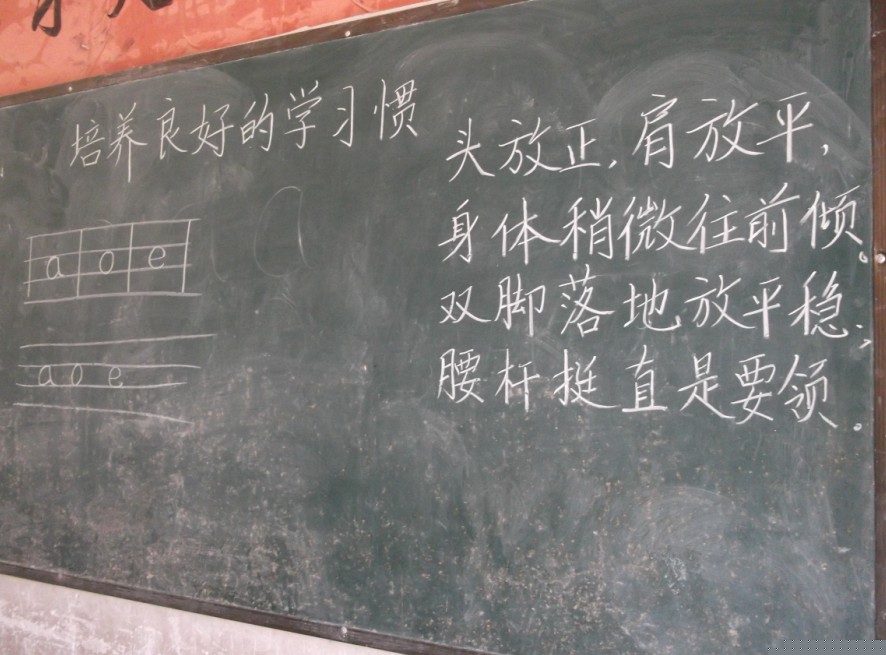 培养良好的学习惯
a o e
a o e
头放正,肩放平,
身体稍微往前倾。
双脚落地放平稳;
腰杆挺直是要领。